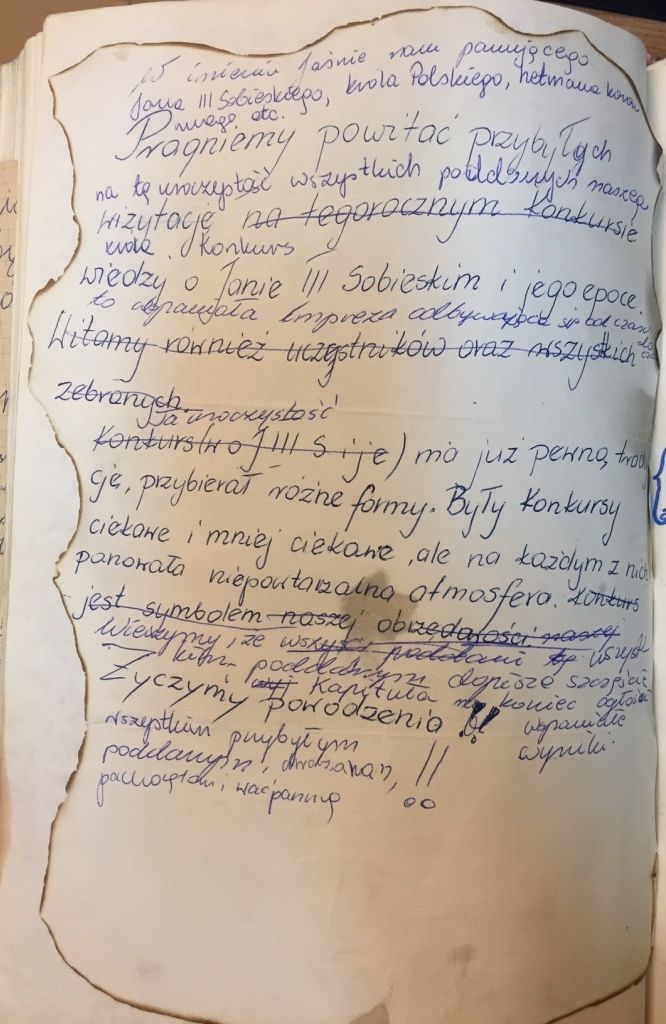 W imieniu Jaśnie nam panującego
Jana III Sobieskiego, króla Polskiego, hetmana
etc.
Pragniemy powitać przybyłych
na tę uroczystość wszystkich poddanych naszego
wizytację na tegorocznym Konkursie
króla. Konkurs
wiedzy o Janie III Sobieskim i jego epoce.
to wspaniała impreza odbywająca się od czasu do
Witamy również uczestników oraz wszystkich
zebranych.
Ta uroczystość
Konkurs (w o J III S i je) ma już pewną trady
cję, przybierał różne formy. Były Konkursy
ciekawe i mniej ciekawe, ale na każdym z nich
panowała niepowtarzalna atmosfera. Konkurs
jest symbolem naszej obrzędowości naszej
Wierzymy, że wszyscy poddani wszyst
kim poddanym dopisze szczęście
Kapituła na koniec ogłosi
Życzymy powodzenia!!
wspaniałe
wszystkim przybyłym
wyniki.
poddanym, dworzanom, !!
pachołkom i waćpanną